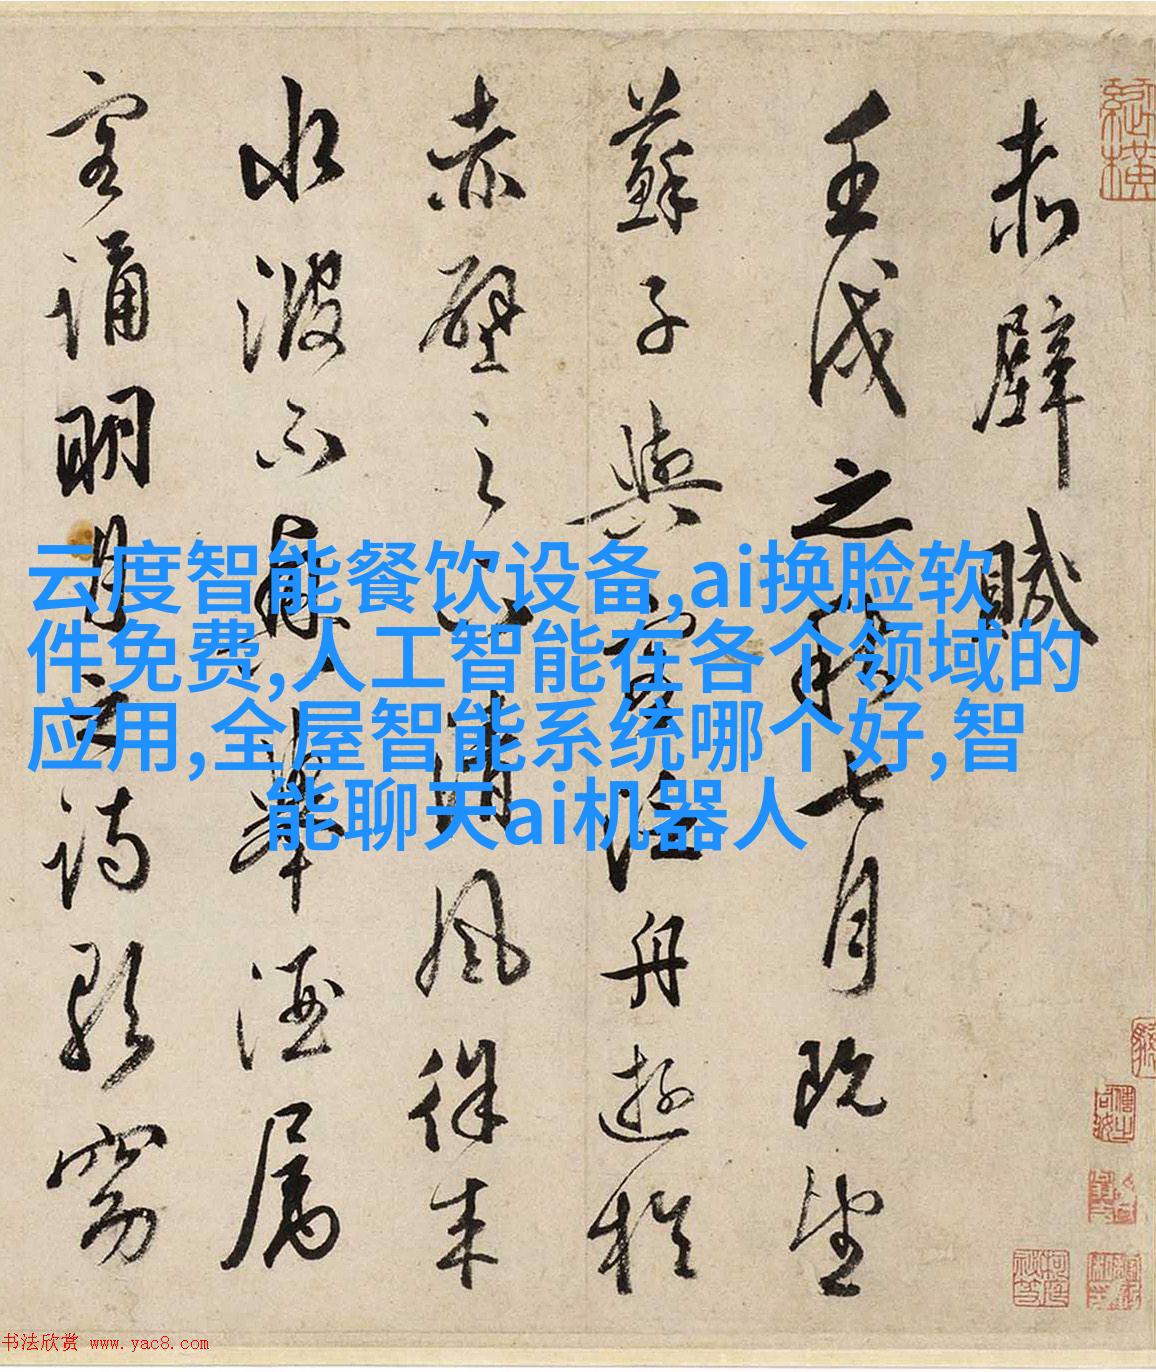 赤壁賦
壬戌之秋七月既望
蘇子與客泛舟遊於
赤壁之下清風徐來
水波不興舉酒屬
客誦明月之詩歌窈
云度智能餐饮设备,ai换脸软
件免费,人工智能在各个领域的
应用,全屋智能系统哪个好,智
能聊天ai机器人
书法欣赏 www.yac8.com